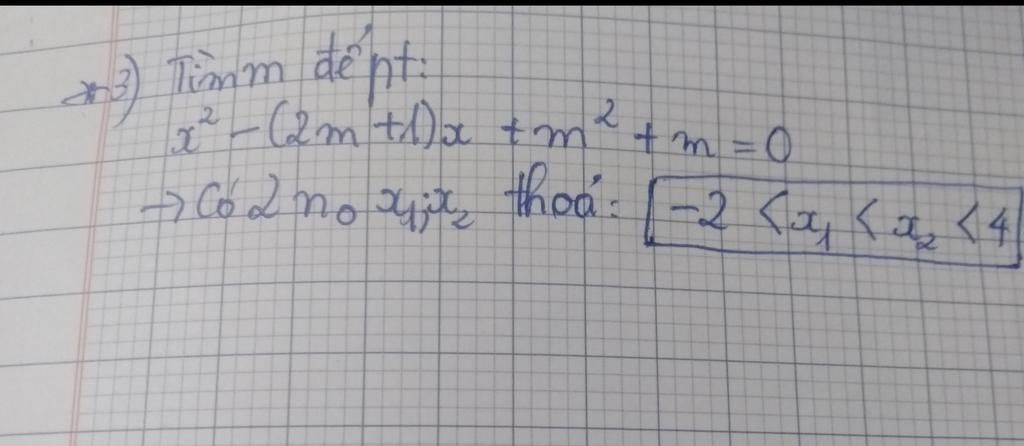 3) Tìm m để pt:
x² - (2m+1)x + m² + m = 0
→ Có 2 n₀ x₁; x₂ thoả: -2 < x₁ < x₂ < 4